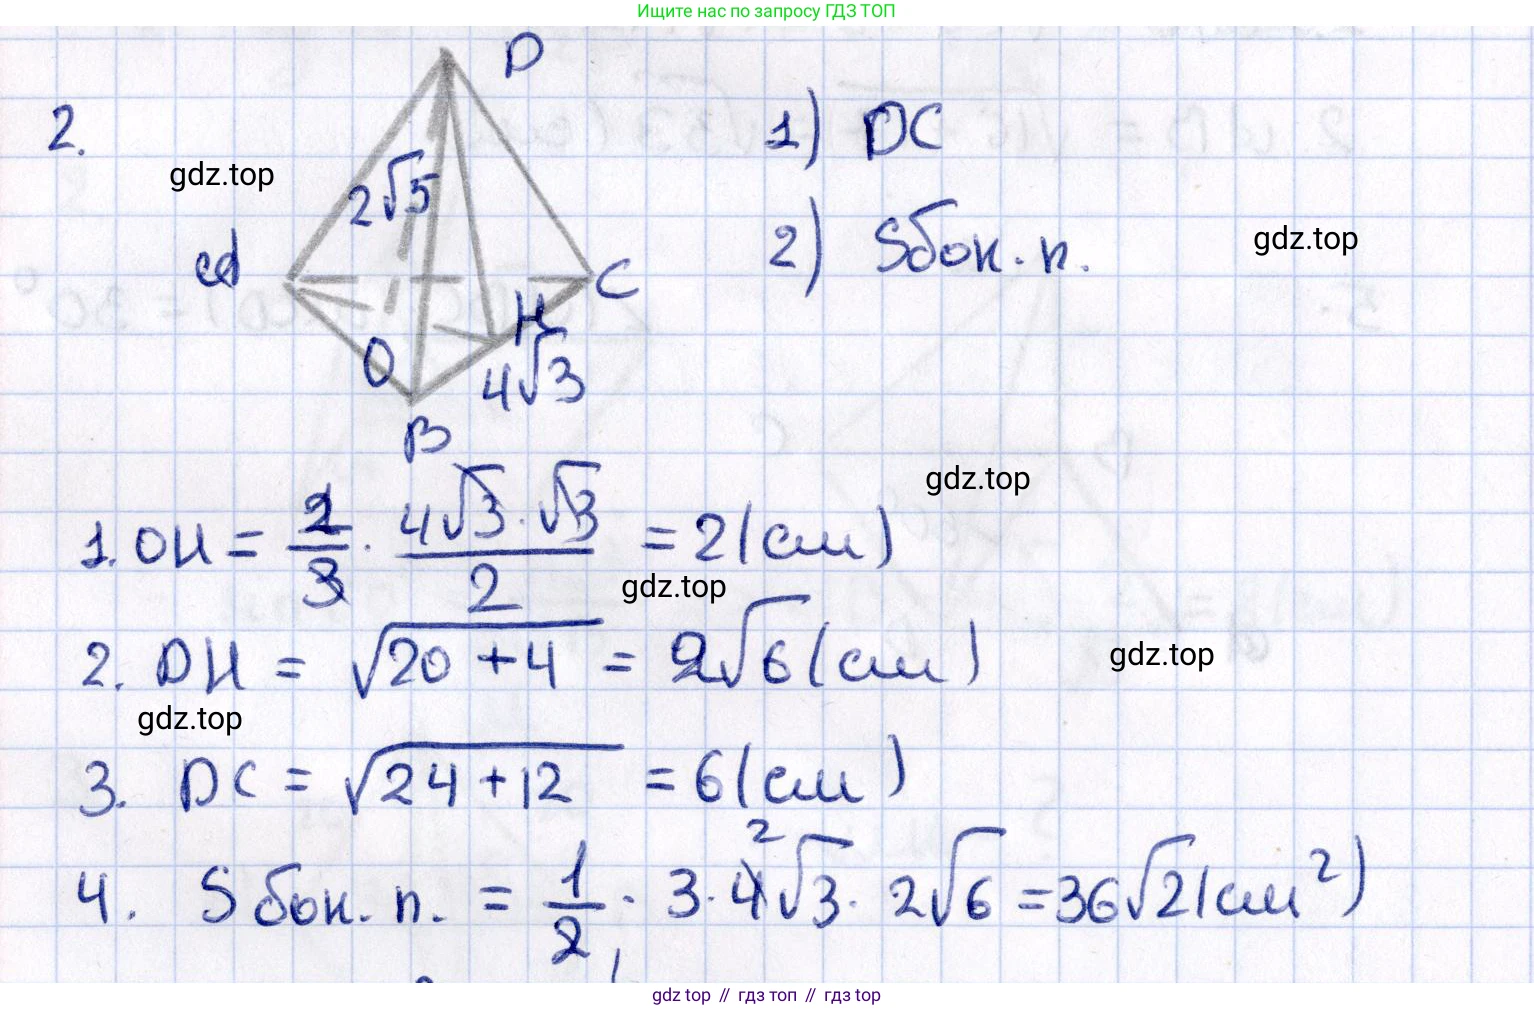 Ищите нас по запросу ГДЗ ТОП
2.
D
1) DC
gdz.top
2√5
A
C
2) Sбок.п.
gdz.top
H
O
4√3
B
gdz.top
1. OH = 1/3 · 4√3·√3/2 = 2(см)
gdz.top
2. DH = √20+4 = 2√6(см)
gdz.top
gdz.top
3. DC = √24+12 = 6(см)
2
4. Sбок.п. = 1/2 · 3·4√3· 2√6 = 36√2(см²)
gdz top // гдз топ // гдз top